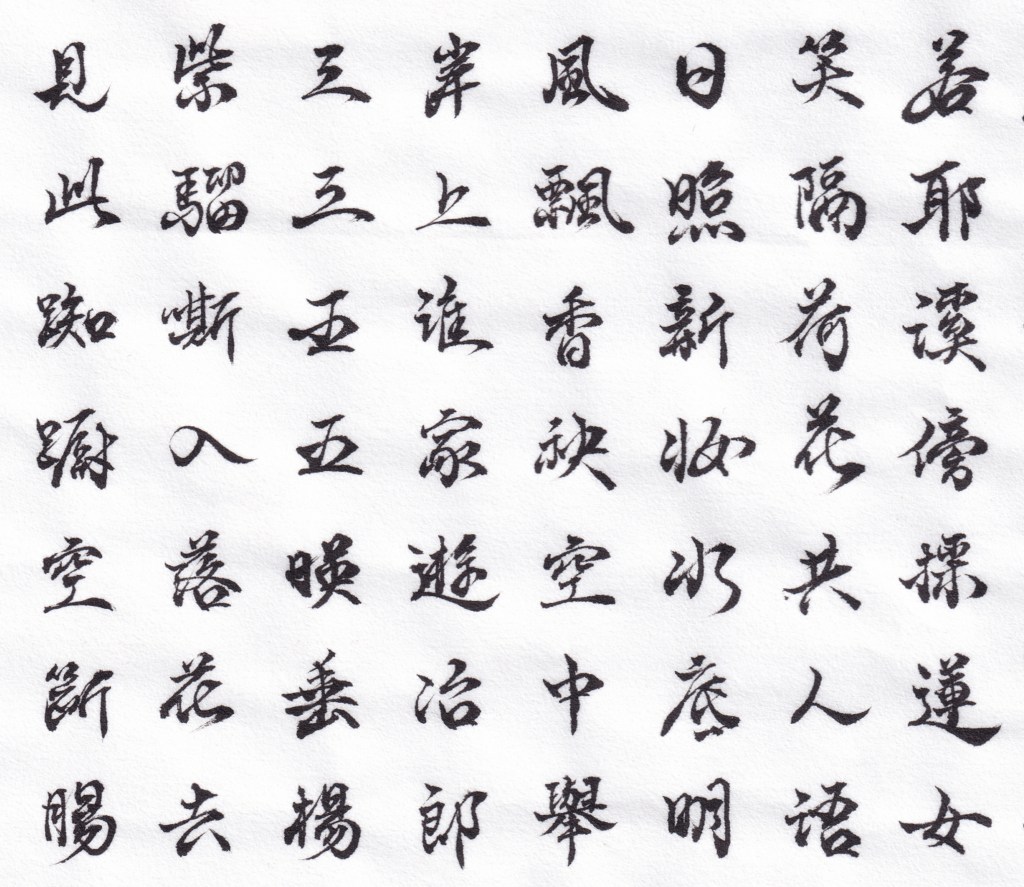 若耶溪傍採蓮女
笑隔荷花共人語
日照新妝水底明
風飄香袂空中舉
岸上誰家遊冶郎
三三五五暎垂楊
紫騮嘶入落花去
見此踟躕空斷腸